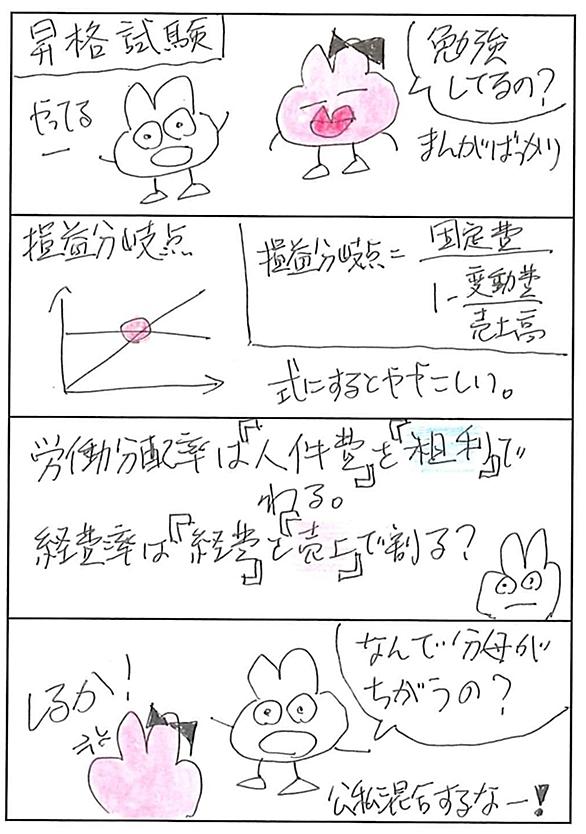 昇格試験
勉強
してるの?
まんがばっかり
やってる
ー
損益分岐点
損益分岐点=
固定費
1-
変動費
売上高
式にするとややこしい。
労働分配率は『人件費』を『粗利』で
わる。
経費率は『経費』を『売上』で割る?
なんで分母が
ちがうの?
しるか!
公私混合するなー!